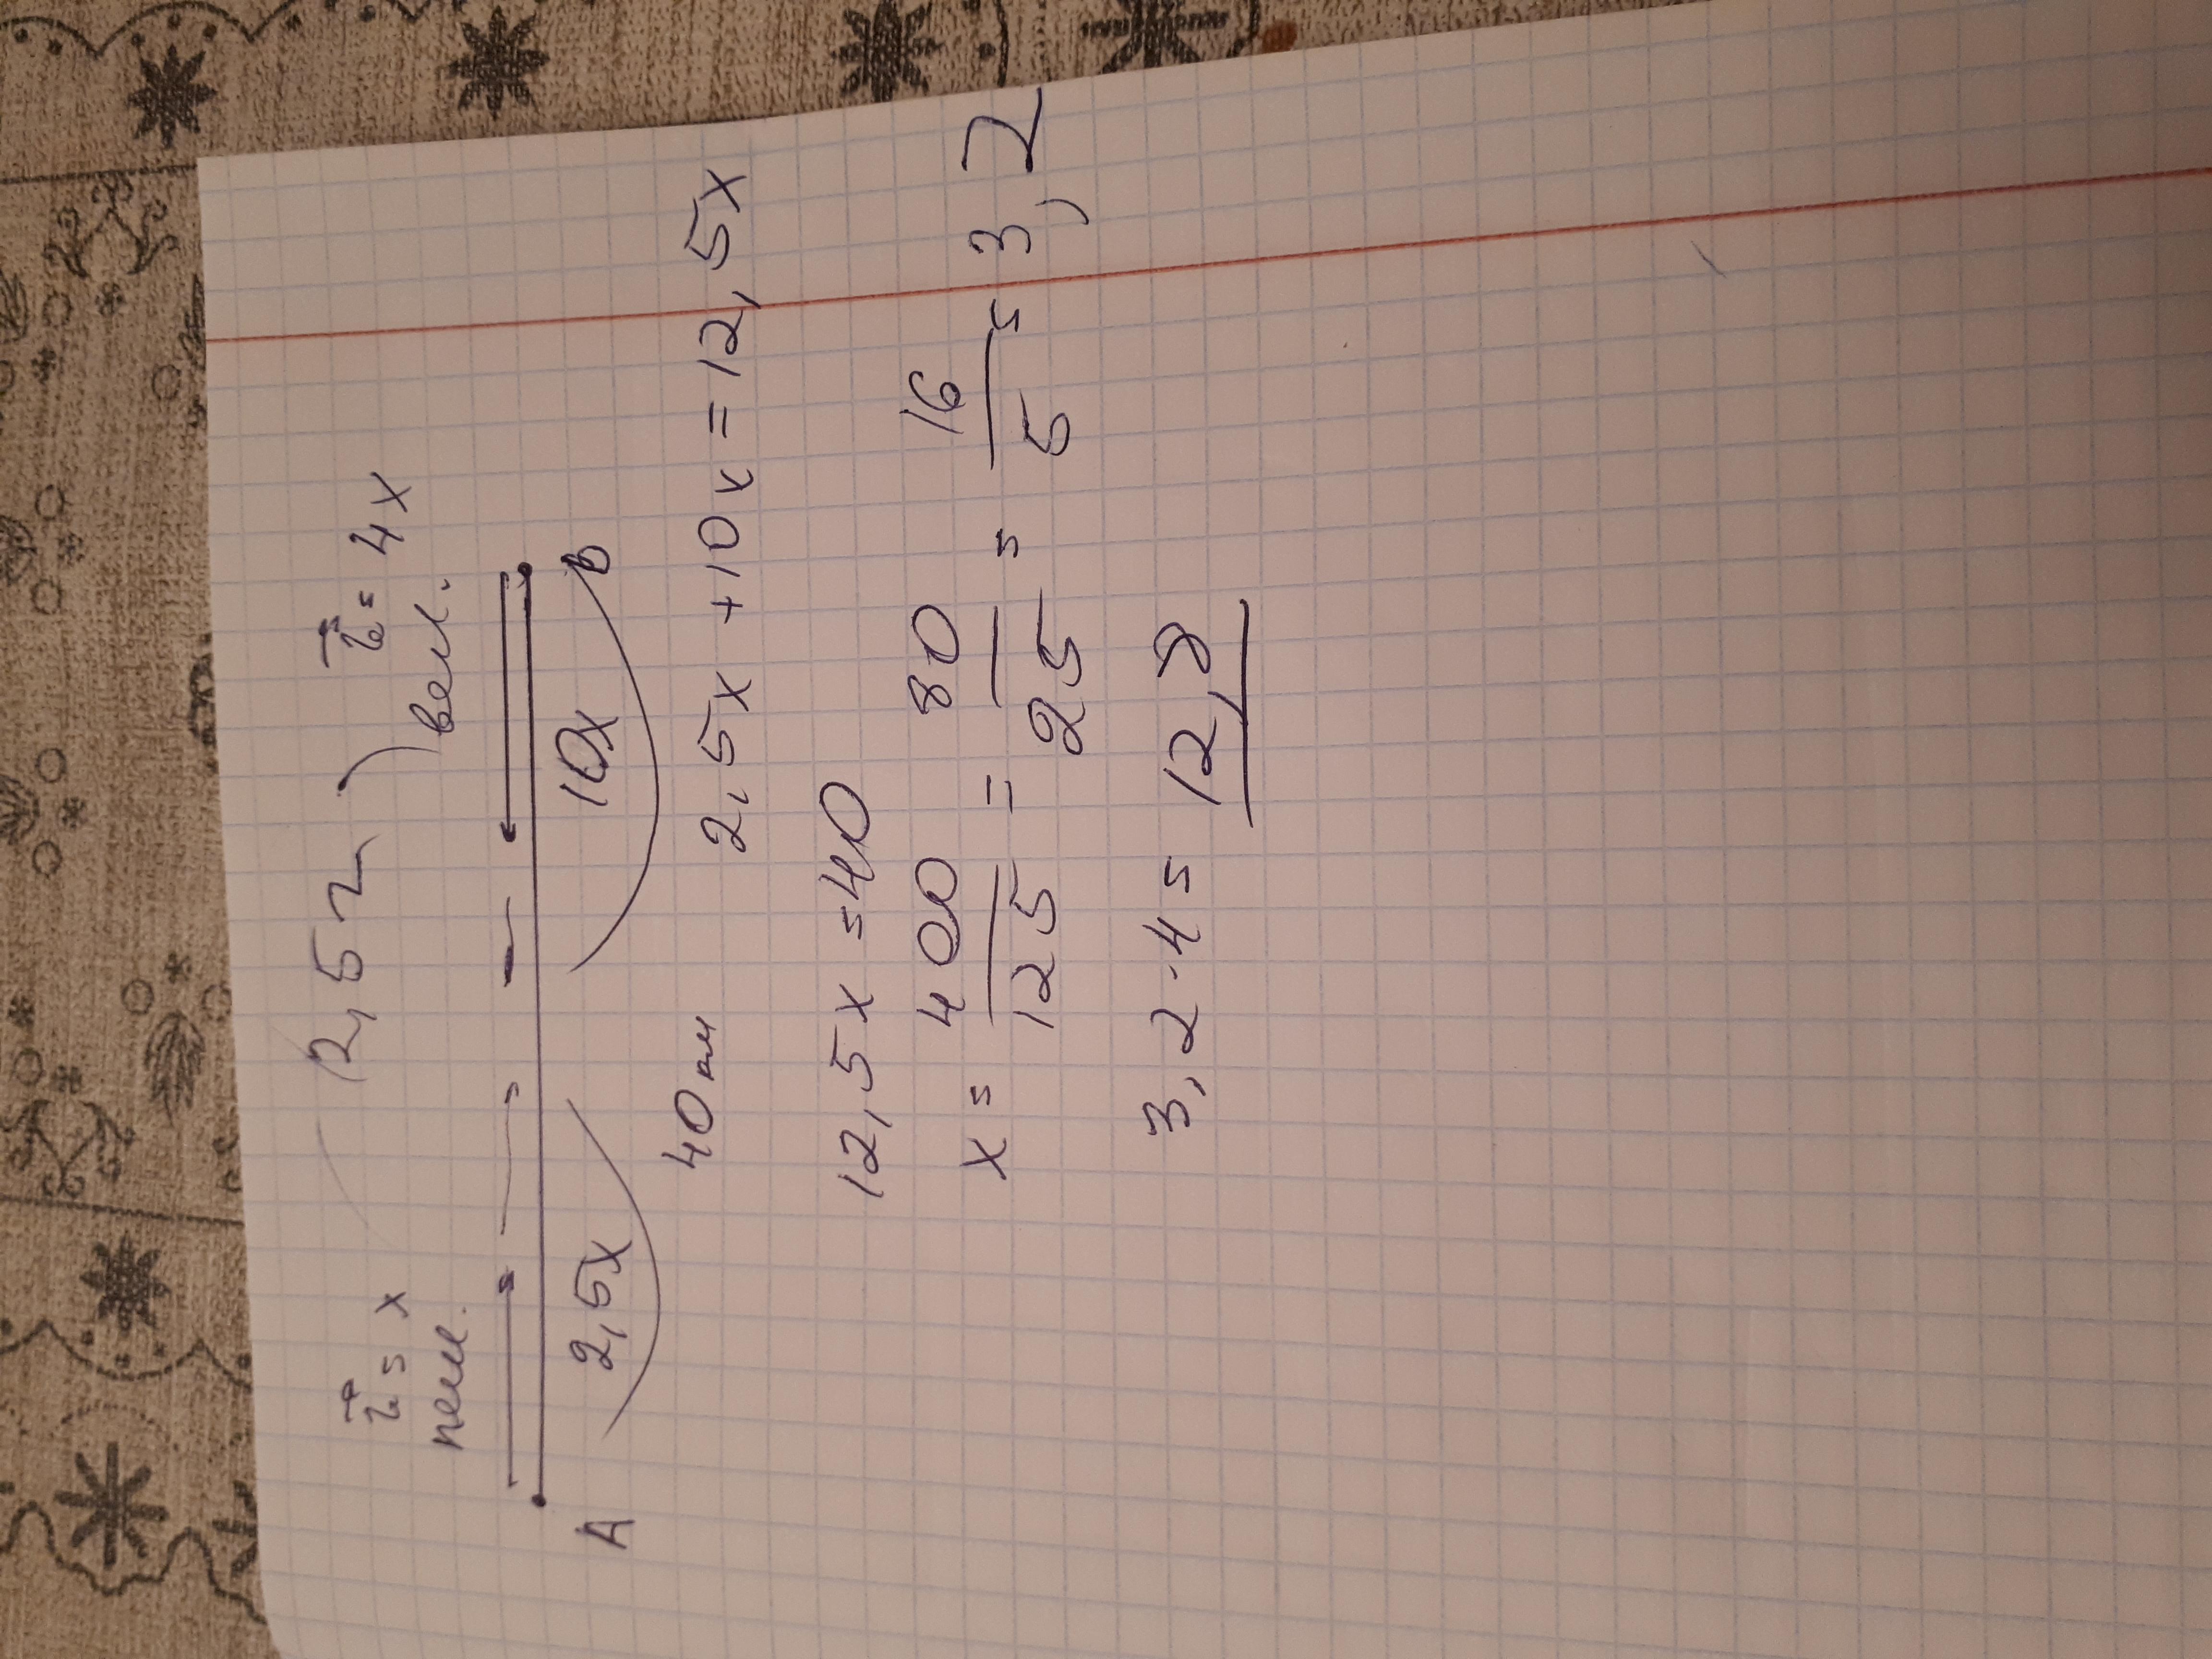 2,5 ч
v = x v = 4x
пеш. вел.
A 2,5x 10x B
40 км
2,5x + 10x = 12,5x
12,5x = 40
x = 400/125 = 80/25 = 16/5 = 3,2
3,2 · 4 = 12,8